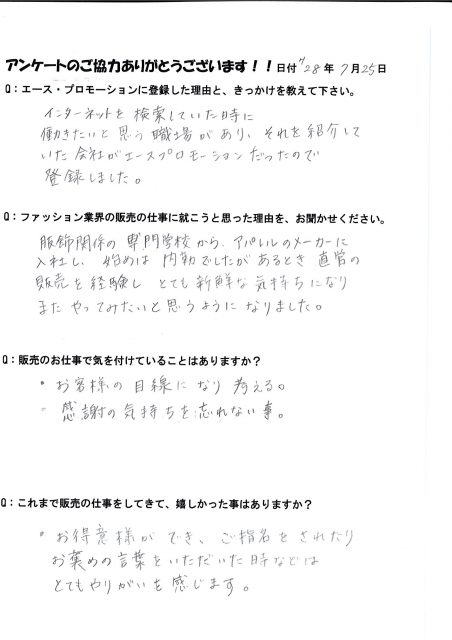 アンケートのご協力ありがとうございます！！日付 H28年7月25日
Q：エース・プロモーションに登録した理由と、きっかけを教えて下さい。
インターネットを検索していた時に
働きたいと思う職場があり、それを紹介して
いた会社がエースプロモーションだったので
登録しました。
Q：ファッション業界の販売の仕事に就こうと思った理由を、お聞かせください。
服飾関係の専門学校から、アパレルのメーカーに
入社し、始めは内勤でしたがあるとき直営の
販売を経験しとても新鮮な気持ちになり
またやってみたいと思うようになりました。
Q：販売のお仕事で気を付けていることはありますか？
・お客様の目線になり考える。
・感謝の気持ちを忘れない事。
Q：これまで販売の仕事をしてきて、嬉しかった事はありますか？
・お得意様ができ、ご指名をされたり
お褒めの言葉をいただいた時などは
とてもやりがいを感じます。